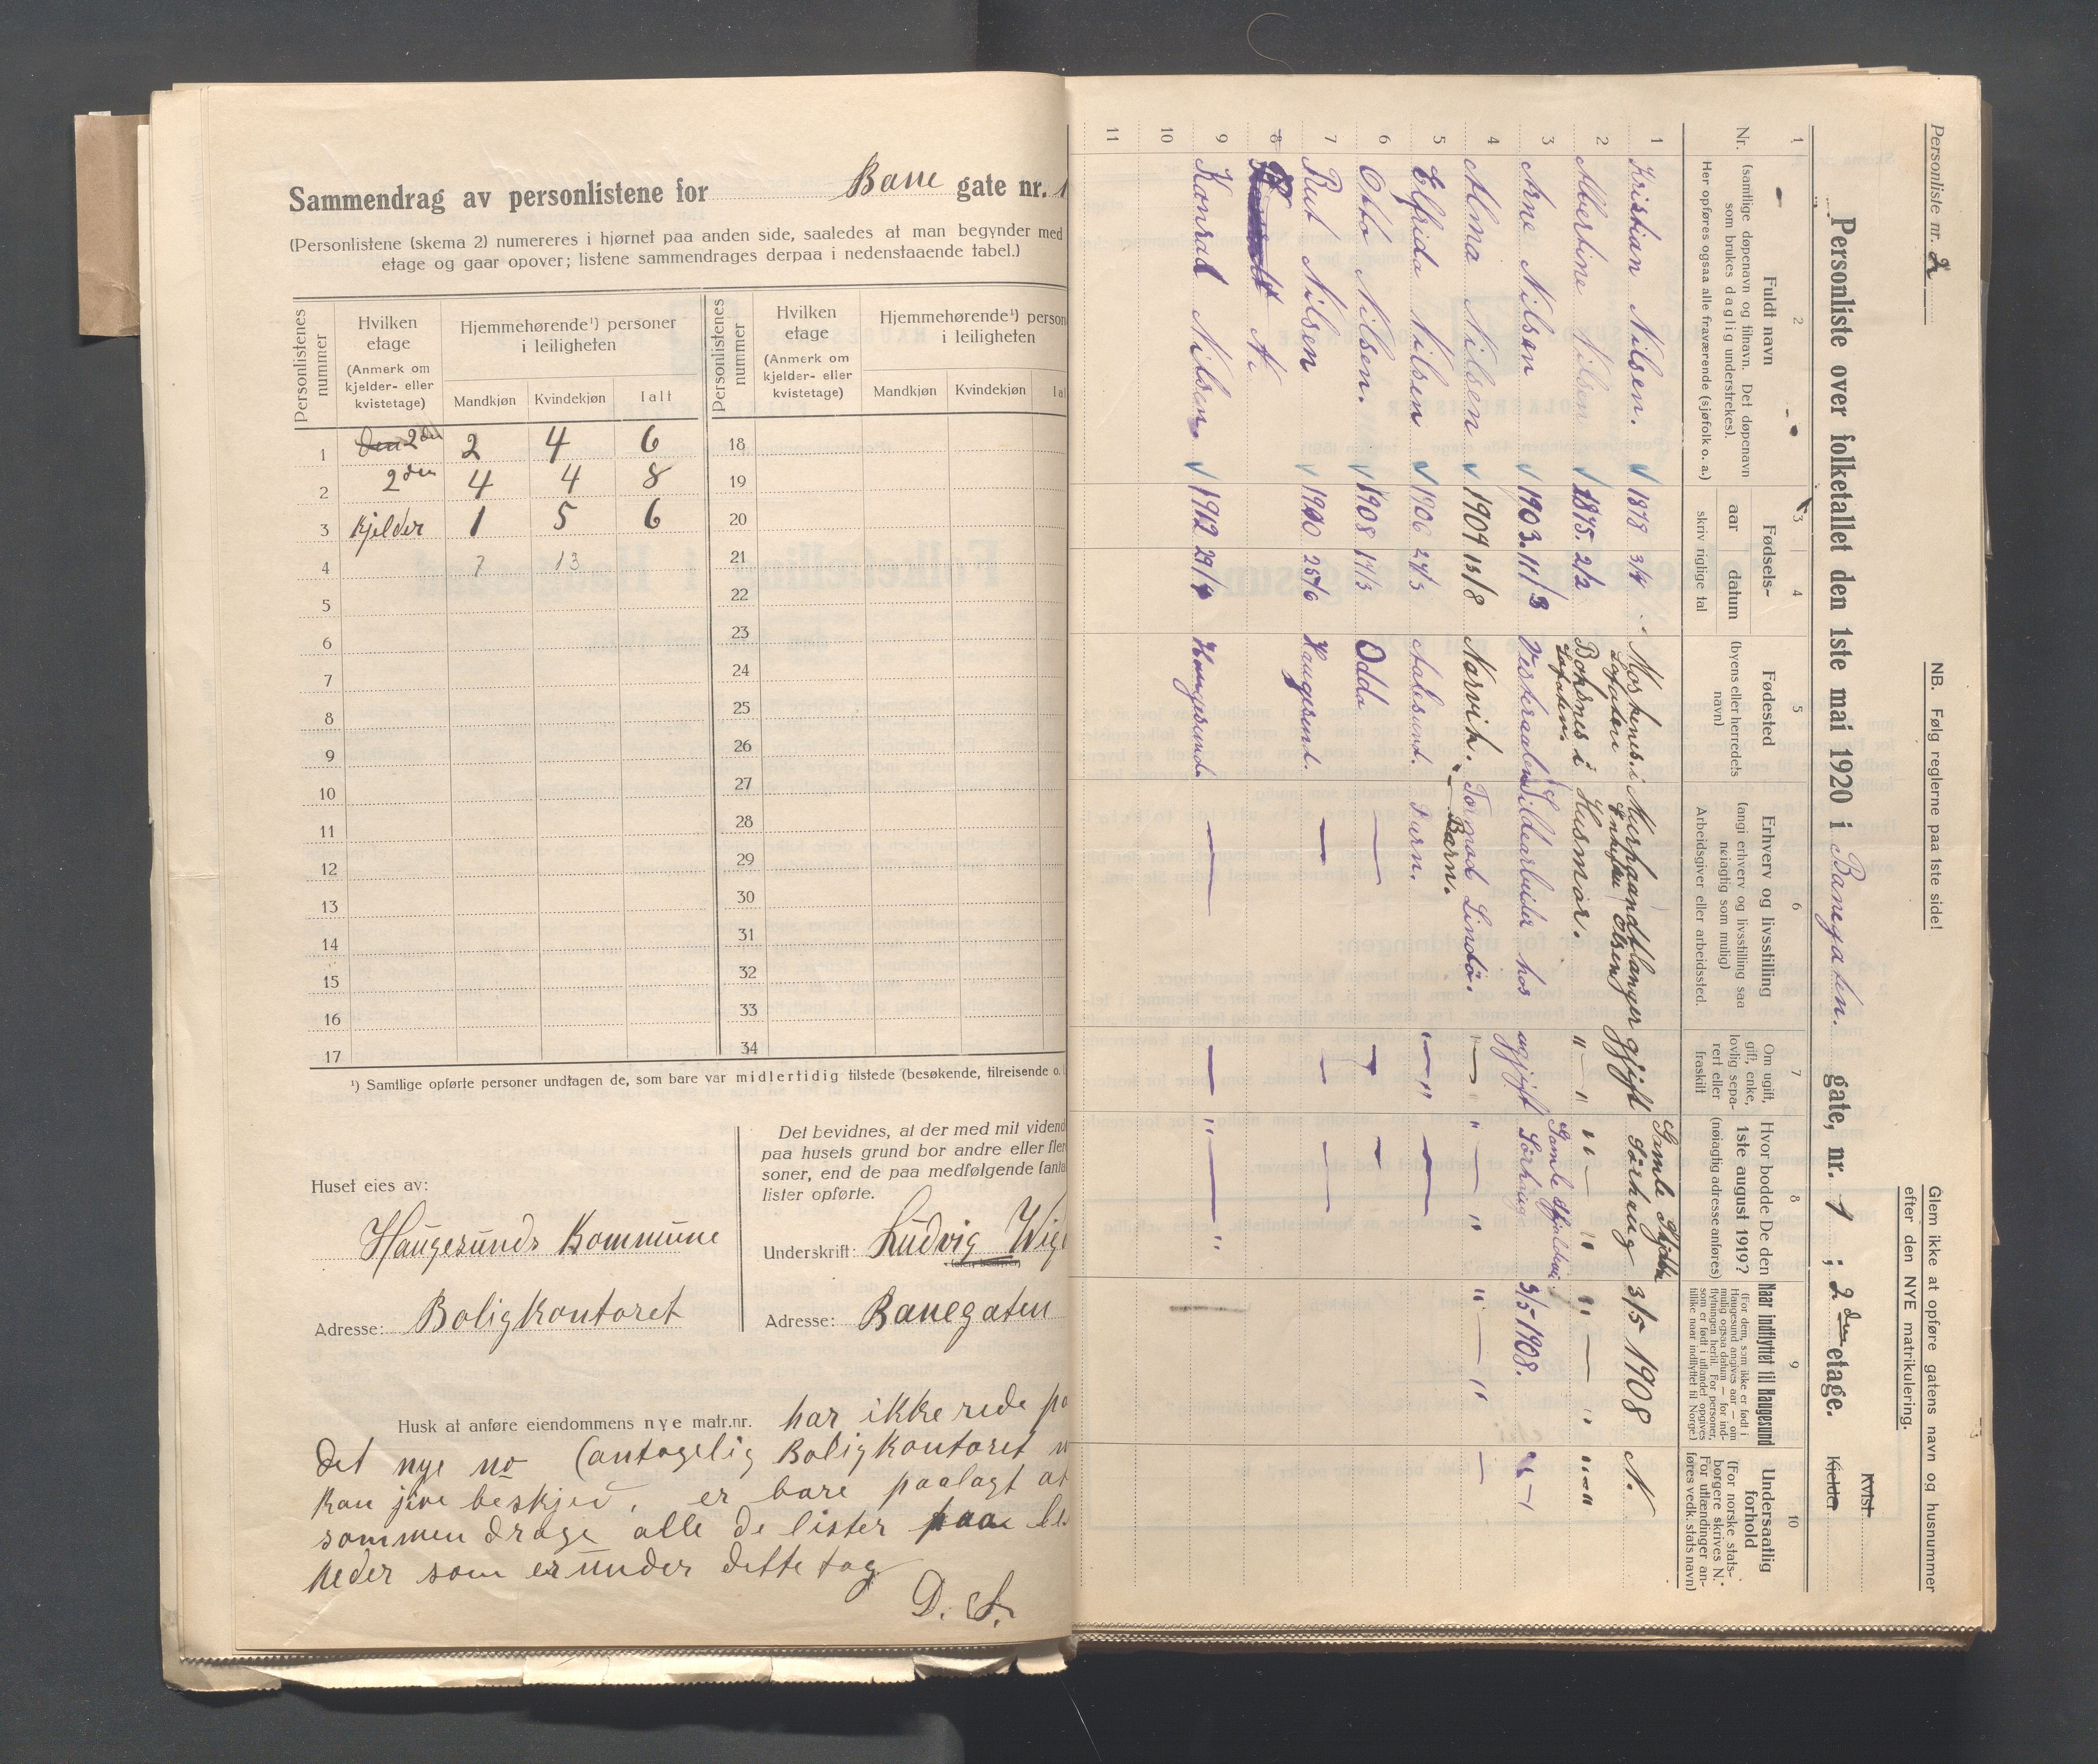 Sammendrag av personlistene for Bane gate nr. 1
(Personlistene (skema 2) numereres i hjørnet paa anden side, saaledes at man begynder med
etage og gaar opover; listene sammendrages derpaa i nedenstaaende tabel.)
Personlistenes nummer
Hvilken etage
(Anmerk om kjelder- eller kvistetage)
Hjemmehørende¹) personer i leiligheten
Mandkjøn Kvindekjøn Ialt
Personlistenes nummer
Hvilken etage
(Anmerk om kjelder- eller kvistetage)
Hjemmehørende¹) person
i leiligheten
Mandkjøn Kvindekjøn Ial
1 2den 2 4 6 18
2 2den 4 4 8 19
3 Kjelder 1 5 6 20
4 7 13 21
5 22
6 23
7 24
8 25
9 26
10 27
11 28
12 29
13 30
14 31
15 32
16 33
17 34
¹) Samtlige opførte personer undtagen de, som bare var midlertidig tilstede (besøkende, tilreisende o. l
Huset eies av:
Haugesunds Kommune
Adresse: Boligkontoret
Det bevidnes, at der med mit vidend
paa husets grund bor andre eller fler
soner, end de paa medfølgende (anta
lister opførte.
Underskrift: Ludvig
Adresse: Banegaten
Husk at anføre eiendommens nye matr.nr. har ikke rede pa
det nye no (antagelig Boligkontoret
kan jive beskjed, er bare paalagt at
sammen drage alle de lister paa
keder som er under dette tag
D. S.
Personliste nr. 2
NB. Følg reglerne paa 1ste side!
Glem ikke at opføre gatens navn og husnummer
efter den NYE matrikulering.
Personliste over folketallet den 1ste mai 1920 i Banegaten. gate, nr. 1 ; 2den etage.
Kvist
Kjelder
1 2 3 4 5 6 7 8 9 10
Nr.
Fuldt navn
(samtlige døpenavn og tilnavn. Det døpenavn
som brukes daglig understrekes).
Her opføres ogsaa alle fraværende (sjøfolk o. a.)
Fødsels-
aar datum
skriv riglige tal
Fødested
(byens eller herredets
navn)
Erhverv og livsstilling
(angi erhverv og livsstilling saa
nøiagtig som mulig)
Arbeidsgiver eller arbeidssted.
Om ugift,
gift, enke,
lovlig sepa-
rert eller
fraskilt
Hvor bodde De den
1ste august 1919?
(nøiagtig adresse anføres)
Naar indflyttet til Haugesund
(For dem, som ikke er født i
Haugesund angives aar — om
mulig ogsaa datum — for ind-
flytningen hertil. For personer,
som er født i utlandet opgives
tillike naar indflyttet til Norge.)
Undersaatlig
forhold
(For norske stats-
borgere skrives N.
For utlændinger an-
føres vedk. stats navn)
1 Kristian Nilsen. 1878 3/4 Moskenes i Lofoten Murhaandlanger gjift Gamle Skjolder Sørhaug 3/5 1908 N.
2 Albertine Nilsen 1875. 2/2 i Lofoten. Husmor. " — " " — " " — " " — "
3 Arne Nilsen 1903. 11/3 Vesteraalen Sildearbeider hos ugjift Sørhaug 3/5-1908. " —
4 Alma Nilsen 1904 13/8 Narvik. Lindø. — " — " " — " —
5 Elfrida Nilsen 1906 24/5 Aalesund. Barn. — " —
6 Otto Nilsen. 1908 17/3 Odda — — —
7 Rut Nilsen 1910 25/6 Haugesund. — — —
8 N.
9 Konrad Nilsen. 1912 29/4 Haugesund — — " — "
10
11